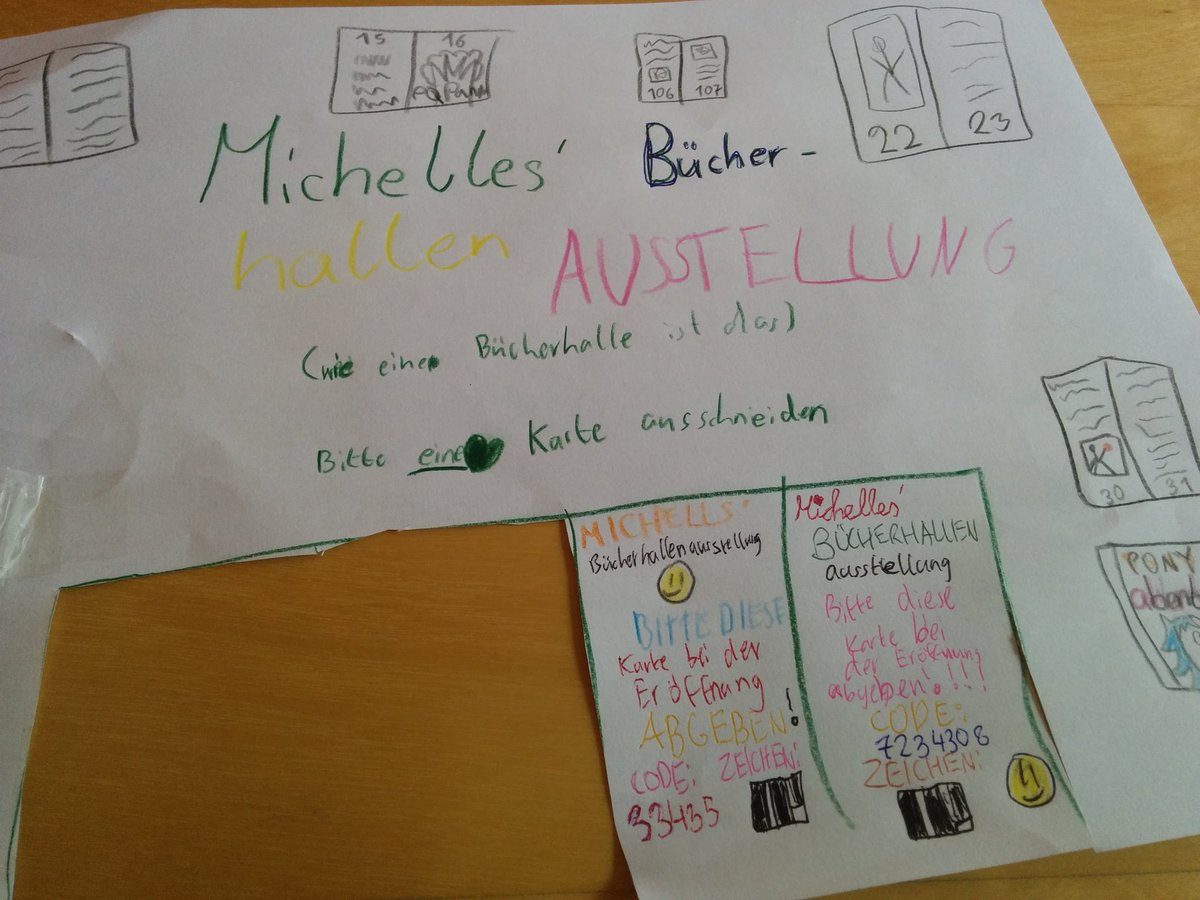 15 16
106 107
22 23
Michelles' Bücher-
hallen AUSSTELLUNG
(wie eine Bücherhalle ist das)
Bitte eine Karte ausschneiden
30 31
PONY
abent
MICHELLS'
Bücherhallenausstellung
BITTE DIESE
Karte bei der
Eröffnung
ABGEBEN!
CODE: ZEICHEN:
33435
Michelles'
BÜCHERHALLEN
ausstellung
Bitte diese
Karte bei
der Eröffnung
abgeben!!!
CODE:
7234308
ZEICHEN: